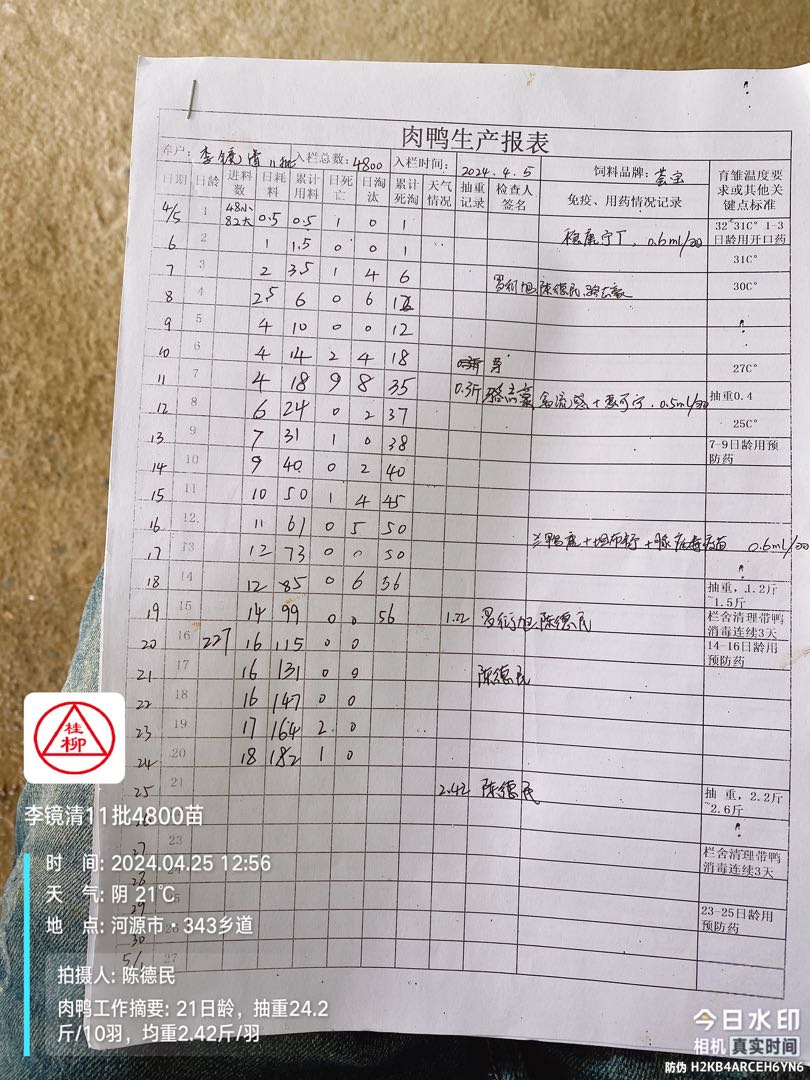 肉鸭生产报表
养户: 李镜清11批 入栏总数: 4800 入栏时间: 2024.4.5 饲料品牌: 育雏温度要求或其他关键点标准
日期 日龄 进料数 日耗料 累计用料 日死亡 日淘汰 累计死淘 天气情况 抽重记录 检查人签名 免疫、用药情况记录
4/5 1 48小 82大 0.5 0.5 1 0 1 0.6ml/羽 32~31C° 1-3日龄用开口药
6 2 1 1.5 0 0 1 31C°
7 3 2 3.5 1 4 6 陈德民 30C°
8 4 2.5 6 0 6 12
9 5 4 10 0 0 12
10 6 4 14 2 4 18 27C°
11 7 4 18 9 8 35 0.3斤 0.5ml/羽 抽重0.4
12 8 6 24 0 2 37 25C°
13 9 7 31 1 0 38 7-9日龄用预防药
14 10 9 40 0 2 40
15 11 10 50 1 4 45
16 12 11 61 0 5 50 0.6ml/羽
17 13 12 73 0 0 50
18 14 12 85 0 6 56 抽重,1.2斤~1.5斤
19 15 14 99 0 0 56 1.22 陈德民 栏舍清理带鸭消毒连续3天
20 16 227 16 115 0 0 14-16日龄用预防药
21 17 16 131 0 0 陈德民
22 18 16 147 0 0
23 19 17 164 2 0
24 20 18 182 1 0
25 21 2.42 陈德民 抽重,2.2斤~2.6斤
23
27 栏舍清理带鸭消毒连续3天
23-25日龄用预防药
30
5/1 27
桂柳
李镜清11批4800苗
时 间: 2024.04.25 12:56
天 气: 阴 21℃
地 点: 河源市·343乡道
拍摄人: 陈德民
肉鸭工作摘要: 21日龄，抽重24.2
斤/10羽，均重2.42斤/羽
今日水印
相机 真实时间
防伪 H2KB4ARCEH6YN6